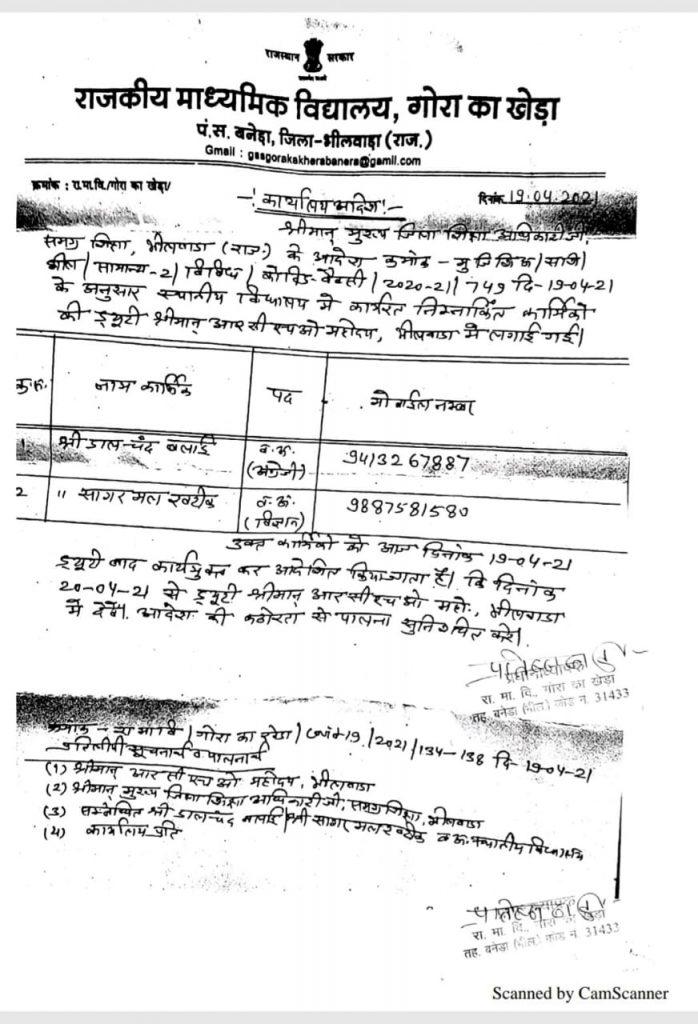 राजस्थान सरकार
राजकीय माध्यमिक विद्यालय, गोरा का खेड़ा
पं.स. बनेडा, जिला-भीलवाडा (राज.)
Gmail : gssgorakakherabanera@gamil.com
क्रमांक : रा.मा.वि/गोरा का खेड़ा/ दिनांक 19.04.2021
-: कार्यालय आदेश :-
श्रीमान् मुख्य जिला शिक्षा अधिकारीजी,
समग्र शिक्षा, भीलवाडा (राज.) के आदेश क्रमांक -
भील/सामान्य-2/विविध/कोविड-वैक्सी/2020-21/749 दि-19-04-21
के अनुसार स्थानीय विद्यालय में कार्यरत निम्नांकित कार्मिको
की ड्यूटी श्रीमान् आर सी एच ओ महोदय, भीलवाडा में लगाई गई।
क्र.स. नाम कार्मिक पद मोबाईल नम्बर
1 श्री डालचंद बलाई व.अ. (अंग्रेजी) 9413267887
2 " सागर मल खटीक व.अ. (विज्ञान) 9887581580
उक्त कार्मिको को आज दिनांक 19-04-21
ड्यूटी बाद कार्यमुक्त कर आदेशित किया जाता है। कि दिनांक
20-04-21 से ड्यूटी श्रीमान् आर सी एच ओ महो., भीलवाडा
में देवें। आदेश की कठोरता से पालना सुनिश्चित करे।
रा. मा. वि., गोरा का खेड़ा
तह. बनेडा (भील) कोड नं. 31433
क्रमांक - रा मा वि / गोरा का खेडा / कोविड19 /2021/134-138 दि-19-04-21
प्रतिलिपी सूचनार्थ व पालनार्थ
(1) श्रीमान् आर सी एच ओ महोदय, भीलवाडा
(2) श्रीमान् मुख्य जिला शिक्षा अधिकारीजी, समग्र शिक्षा, भीलवाडा
(3) सम्बन्धित श्री डालचंद बलाई/श्री सागर मल खटीक व.अ. स्थानीय विद्यालय
(4) कार्यालय प्रति
रा. मा. वि., गोरा का खेड़ा
तह. बनेडा (भील) कोड नं. 31433
Scanned by CamScanner